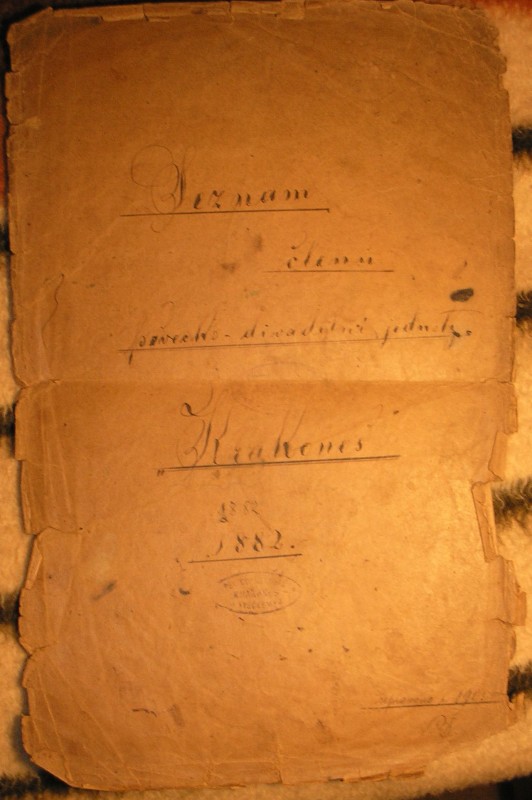 Seznam
členů
pěvecko-divadelní jednoty
„Krakoneš"
1882
1882.